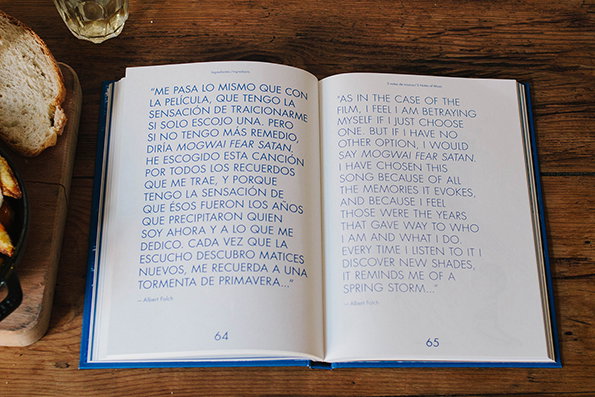 Ingredientes / Ingredients
"ME PASA LO MISMO QUE CON
LA PELÍCULA, QUE TENGO LA
SENSACIÓN DE TRAICIONARME
SI SOLO ESCOJO UNA. PERO
SI NO TENGO MÁS REMEDIO,
DIRÍA MOGWAI FEAR SATAN.
HE ESCOGIDO ESTA CANCIÓN
POR TODOS LOS RECUERDOS
QUE ME TRAE, Y PORQUE
TENGO LA SENSACIÓN DE
QUE ÉSOS FUERON LOS AÑOS
QUE PRECIPITARON QUIEN
SOY AHORA Y A LO QUE ME
DEDICO. CADA VEZ QUE LA
ESCUCHO DESCUBRO MATICES
NUEVOS, ME RECUERDA A UNA
TORMENTA DE PRIMAVERA..."
— Albert Folch
64
"AS IN THE CASE OF THE
FILM, I FEEL I AM BETRAYING
MYSELF IF I JUST CHOOSE
ONE. BUT IF I HAVE NO
OTHER OPTION, I WOULD
SAY MOGWAI FEAR SATAN.
I HAVE CHOSEN THIS
SONG BECAUSE OF ALL
THE MEMORIES IT EVOKES,
AND BECAUSE I FEEL
THOSE WERE THE YEARS
THAT GAVE WAY TO WHO
I AM AND WHAT I DO
EVERY TIME I LISTEN TO IT I
DISCOVER NEW SHADES,
IT REMINDS ME OF A
SPRING STORM..."
— Albert Folch
65